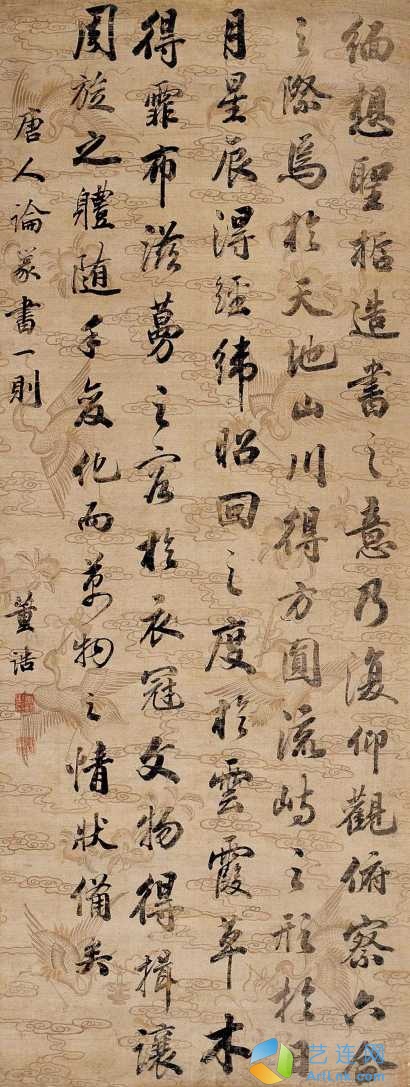 緬想聖哲造書之意乃復仰觀俯察六合
之際焉於天地山川得方圓流峙之形於日
月星辰得經緯昭回之度於雲霞草木
得霏布滋蔓之容於衣冠文物得揖讓
周旋之體隨手變化而萬物之情狀備矣
唐人論篆書一則
董誥
艺连网